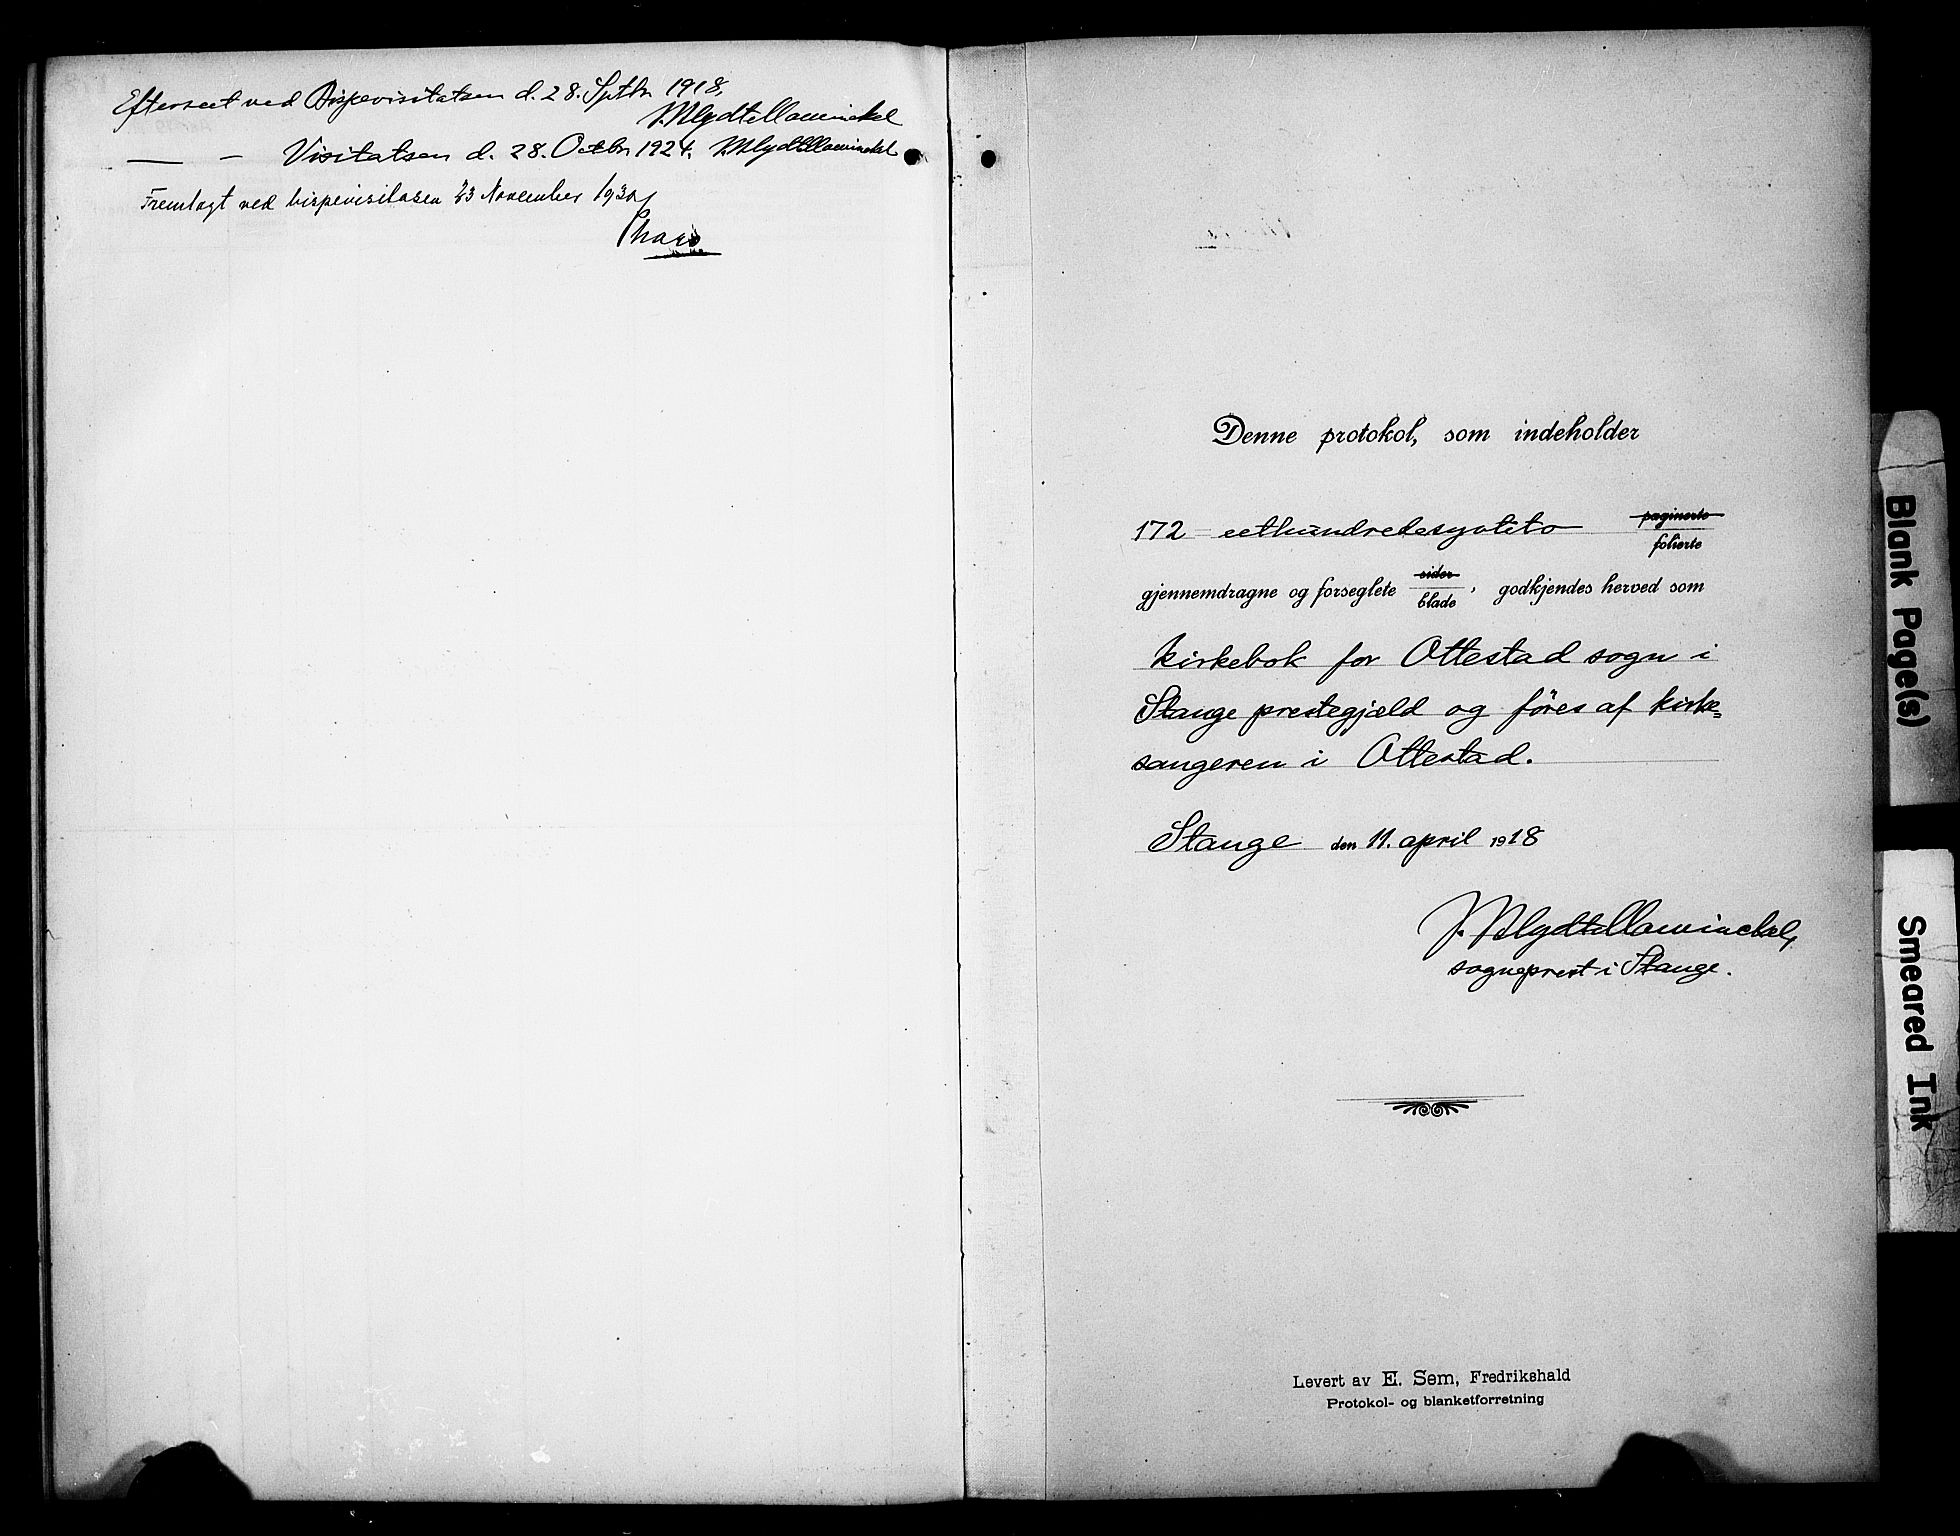 Efterseet ved Bispevisitatsen d. 28. Septbr 1918,
J. Mlydt Mowinckel
— – Visitatsen d. 28. Octbr 1924.
Fremlagt ved bispevisitasen 23 November 1930
Denne protokol, som indeholder
172 – eethundredesyotito paginerte
folierte
gjennemdragne og forseglete sider
blade, godkjendes herved som
kirkebok for Ottestad sogn i
Stange prestegjæld og föres af kirke=
sangeren i Ottestad.
Stange den 11. april 1918
sogneprest i Stange.
Levert av E. Sem, Fredrikshald
Protokol- og blanketforretning
Blank Page(s)
Smeared Ink